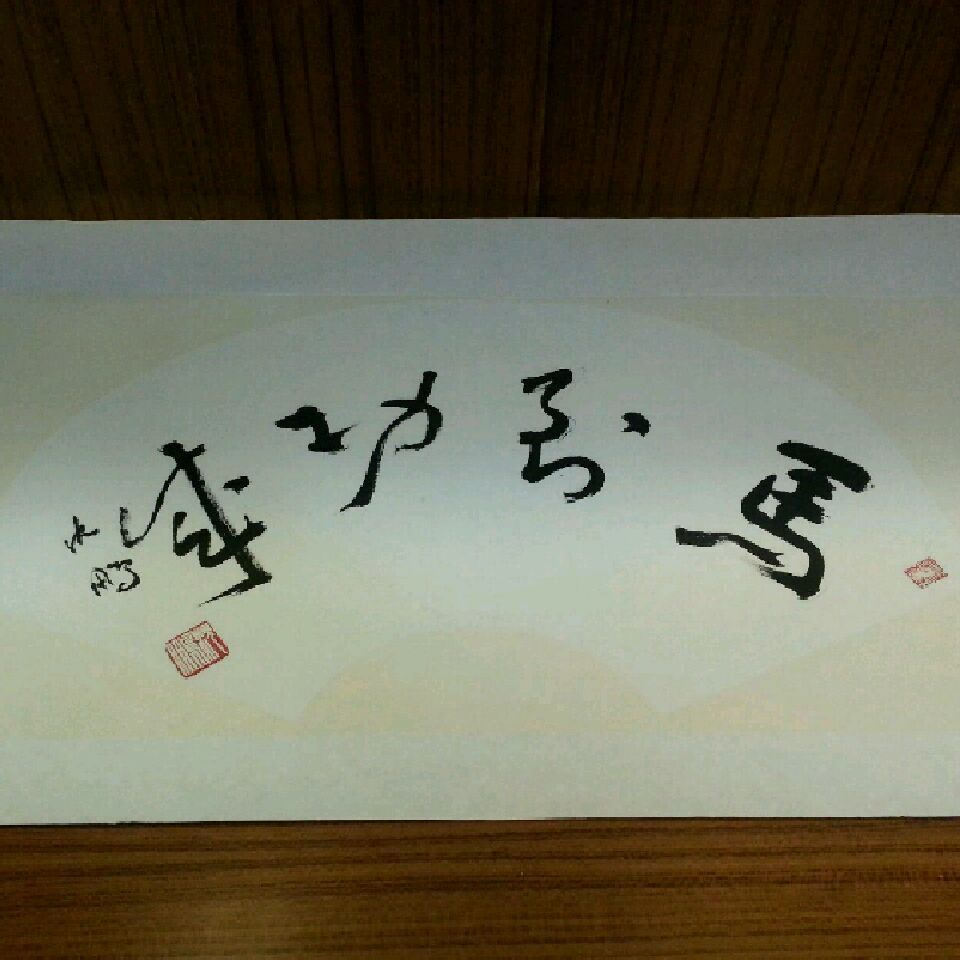 馬到功成